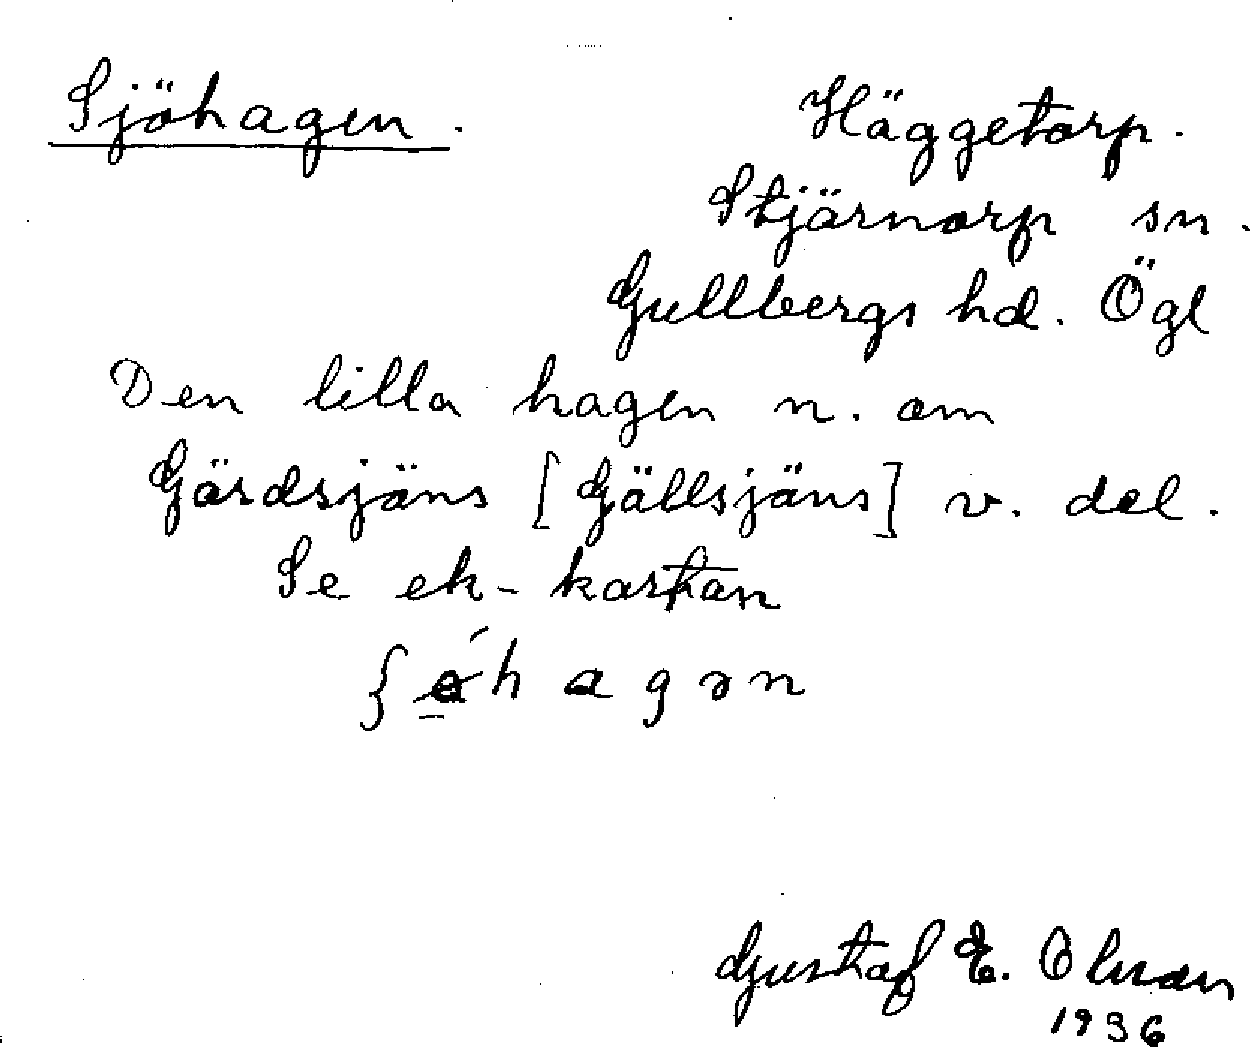 Sjöhagen.
Häggetorp.
Stjärnorp sn.
Gullbergs hd. Ögl
Den lilla hagen n. om
Gärdsjöns [Gällsjöns] v. del.
Se ek-kartan
1936
Gustaf E. Olson